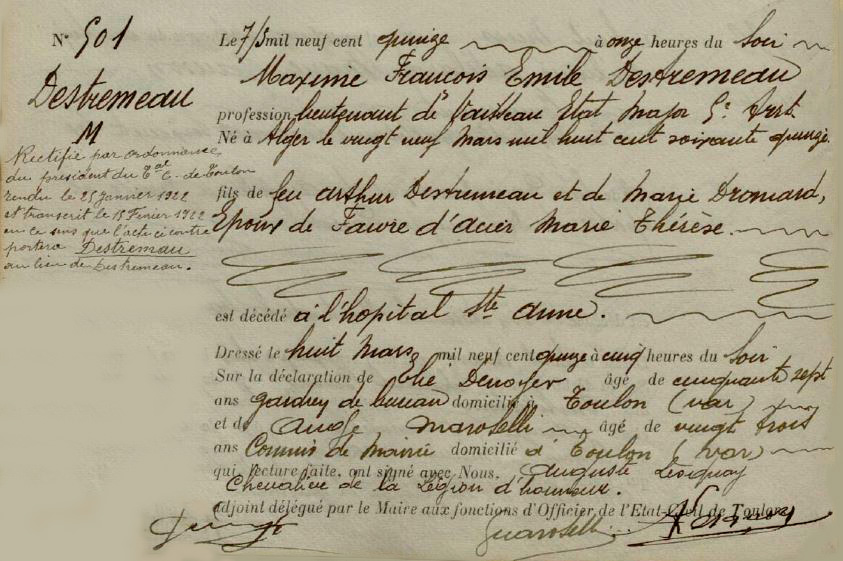 N° 501
Destremeau
M
Rectifié par ordonnance
du président du Tal C. de Toulon
rendu le 25 janvier 1922
et transcrit le 15 Février 1922
en ce sens que l'acte ci contre
portera Destremau
au lieu de Destremeau.
Le 7/3 mil neuf cent quinze à onze heures du Soir
Maxime Francois Emile Destremeau
profession lieutenant de Vaisseau Etat Major
Né à Alger le vingt neuf Mars mil huit cent soixante quinze.
fils de feu Arthur Destremeau et de Marie Dromard,
Epoux de Faure d'acier Marie Thérèse.
est décédé à l'hopital Ste Anne.
Dressé le huit Mars mil neuf cent quinze à cinq heures du Soir
Sur la déclaration de Elie âgé de cinquante sept
ans de bureau domicilié à Toulon (var)
et de Maroselli âgé de vingt trois
ans Commis de Mairie domicilié à Toulon (var)
qui, lecture faite, ont signé avec Nous, Auguste
Chevalier de la Légion d'honneur.
adjoint délégué par le Maire aux fonctions d'Officier de l'Etat-Civil de Toulon
Maroselli